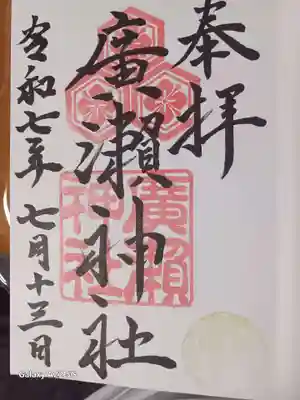 奉拝
廣瀬神社
廣瀬神社
令和七年 七月十三日